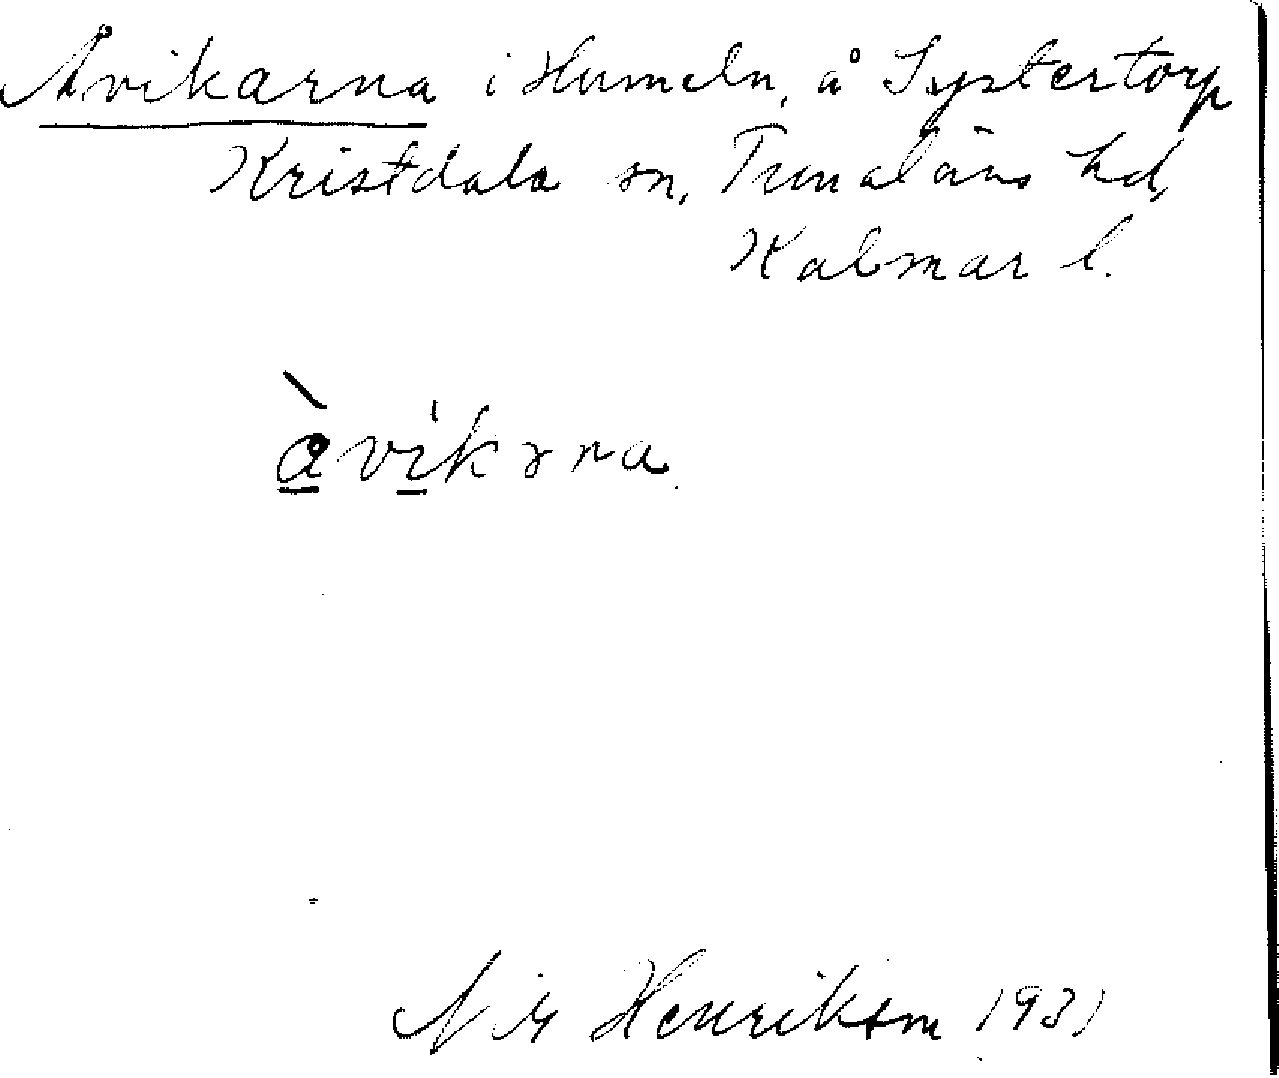 Åvikarna i Humeln, å Systertorp
Kristdala sn, Tunaläns hd,
Kalmar l.
åvikərna
Nils Henrikson 1931